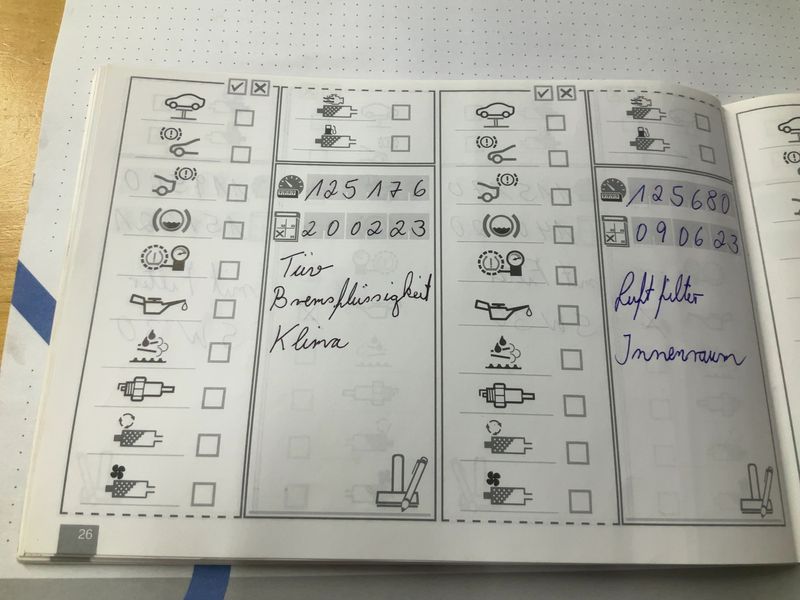 125176
200223
Tüv
Bremsflüssigkeit
Klima
125680
090623
Luftfilter
Innenraum
26